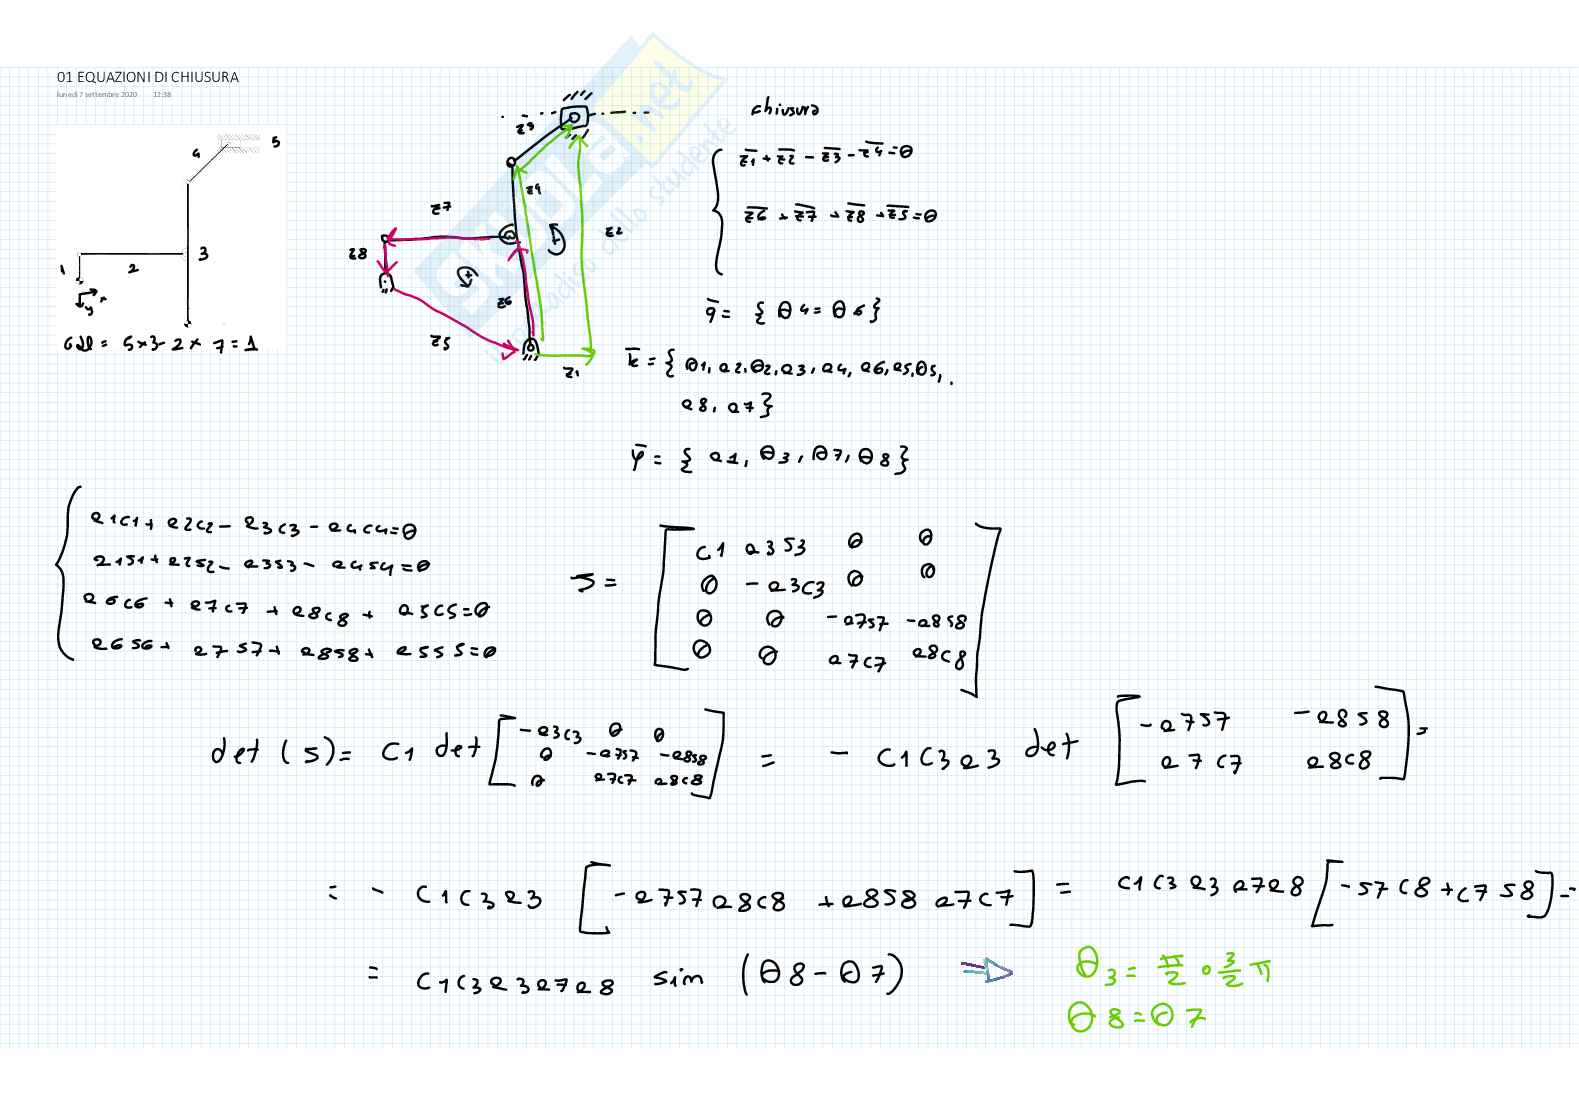 01 EQUAZIONI DI CHIUSURA
lunedì 7 settembre 2020 12:38
4 5
3
1 2
x
y
Gdl = 5×3-2×7=1
z3
z4
z7
z2
z8
z6
z5
z1
SKUOLA.net
paradiso dello studente
chiusura
z1 + z2 - z3 - z4 = 0
z6 + z7 + z8 + z5 = 0
q = { θ4 = θ6 }
k = { θ1, a2, θ2, a3, a4, a6, a5, θ5,
a8, a7 }
φ = { a1, θ3, θ7, θ8 }
a1c1 + a2c2 - a3c3 - a4c4 = 0
a1s1 + a2s2 - a3s3 - a4s4 = 0
a6c6 + a7c7 + a8c8 + a5c5 = 0
a6s6 + a7s7 + a8s8 + a5s5 = 0
J =
c1 a3s3 0 0
0 -a3c3 0 0
0 0 -a7s7 -a8s8
0 0 a7c7 a8c8
det (J) = c1 det [ -a3c3 0 0 ] = - c1c3a3 det [ -a7s7 -a8s8 ] =
0 -a7s7 -a8s8
0 a7c7 a8c8
a7c7 a8c8
= - c1c3a3 [ -a7s7a8c8 + a8s8a7c7 ] = c1c3a3a7a8 [ -s7c8 + c7s8 ] =
= c1c3a3a7a8 sin (θ8 - θ7) ⇒ θ3 = π/2 o 3/2 π
θ8 = θ7